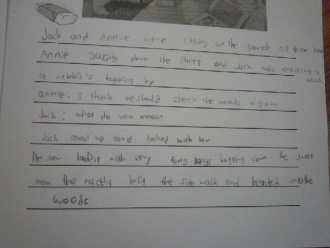 Jack and Annie were sitting on the porch of their
Annie gazing down the street and Jack was
a rabbit's hopping by
annie: I think we should check the woods again
Jack: what do you mean?
Jack stood up and looked with her
He saw with very long legs hopping down the street
then the left the side walk and headed into the
woods